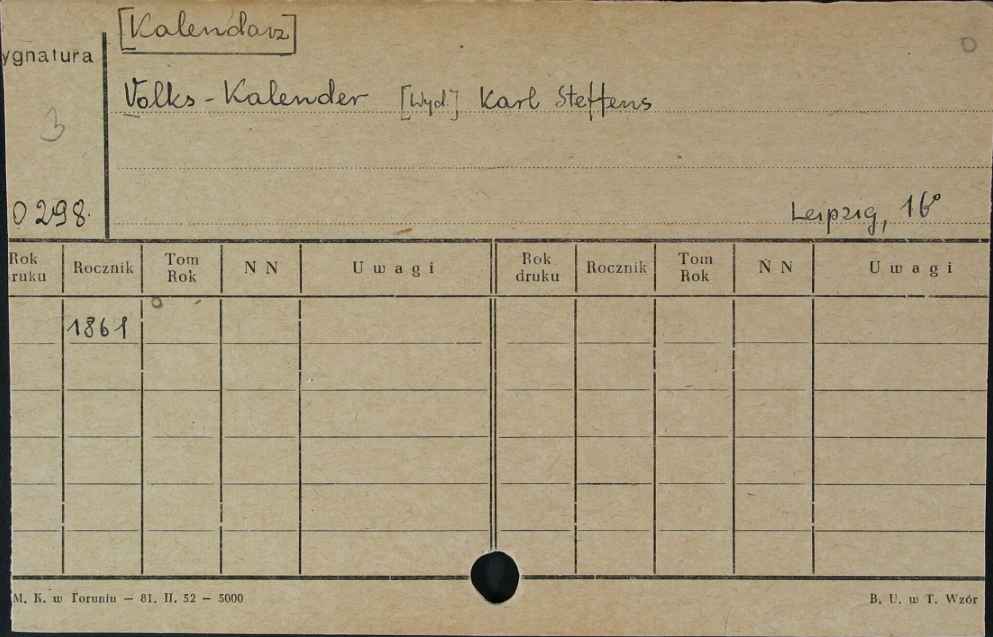 [Kalendarz]
ygnatura
Volks-Kalender [Wyd.] Karl Steffens
3
0298.
Leipzig, 16°
Rok druku Rocznik Tom Rok N N Uwagi Rok druku Rocznik Tom Rok N N Uwagi
1861
M. K. w Toruniu — 81. II. 52 — 5000
B. U. w T. Wzór